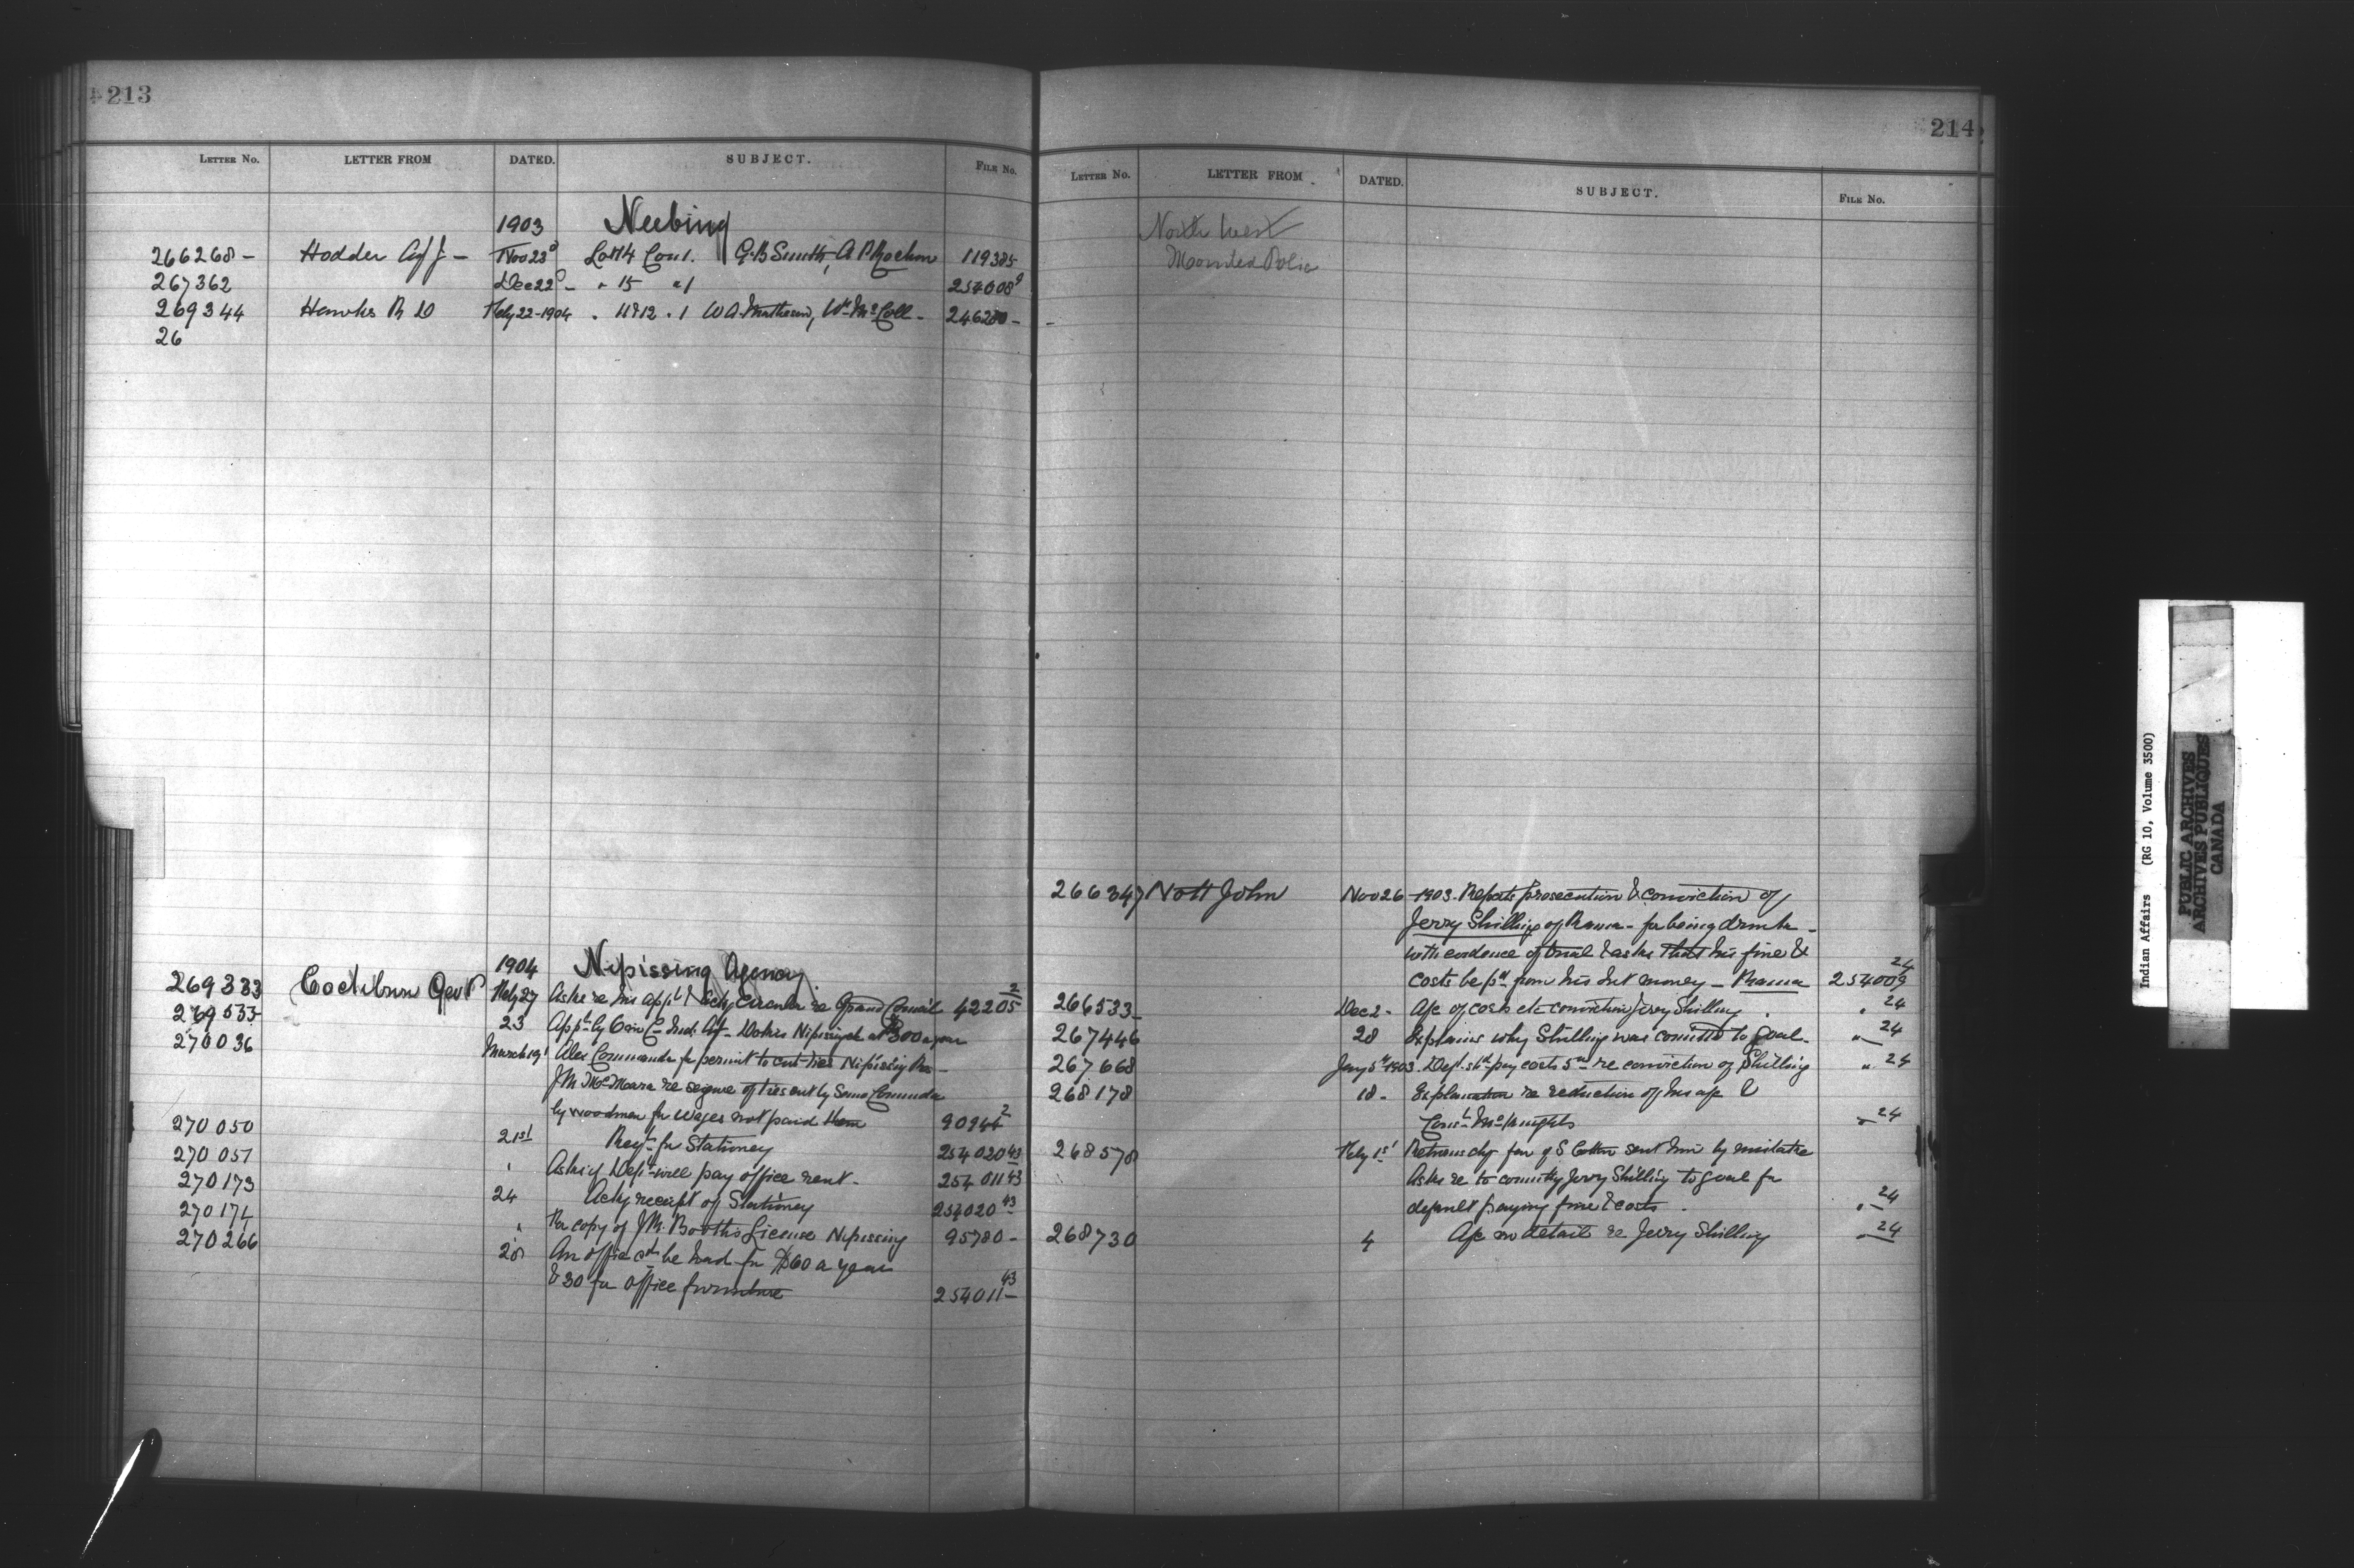 213
LETTER NO. LETTER FROM DATED. SUBJECT. FILE NO.
1903 Neebing
266268 - Hodder Agt J - Nov 23d Lot 14 Con 1. G.B Smith, A P Rochon 119385
267362 Dec 22d - " 15 " 1 254008 9
269344 Hawkes R D Feby 22-1904 " 11 & 12 " 1 W A Matheson, Wm McColl - 246280 -
26
1904 Nipissing Agency
269383 Cockburn Geo P Feby 27 Asks re his appt & ackg Circular re Grand Council 42205 2
269533 23 Appt by O in C Ind. Agt Dokis Nipissing at $300 a year
270036 March 19t Alex Commanda for permit to cut ties Nipissing Res -
J M McNamara re seizure of ties cut by Commanda
by woodmen for wages not paid them 90244 2
270050 21st Reqt for Stationey 254020 43
270051 " Asks if Dept will pay office rent - 254011 43
270173 24 Ackg receipt of Stationey 254020 43
270174 " For copy of J R. Booth's License Nipissing 95780 -
270266 28 An office cd be had for $60 a year
& 30 for office furniture 254011 43
214
LETTER NO. LETTER FROM DATED. SUBJECT. FILE NO.
North West
Mounted Police
266347 Nott John Nov 26 - 1903. Reports prosecution & conviction of
Jerry Shilling of Rama - for being drunk -
with evidence of trial & asks that his fine &
costs be pd from his Int money - Rama 254009 24
266533 Dec 2 - A/c of costs etc conviction Jerry Shilling " 24
267446 28 Explains why Shilling was committed to goal - " 24
267668 Jany 5th 1903. Dept. shd pay costs re conviction of Shilling " 24
268178 18 - Explanation re reduction of his a/c &
Const. McKnights " 24
268578 Feby 1st Returns chq for of S Cotton sent him by mistake
Asks re to committg Jerry Shilling to goal for
default paying fine & costs. " 24
268730 4 A/c in detail re Jerry Shilling " 24
Indian Affairs (RG 10, Volume 3500)
PUBLIC ARCHIVES
ARCHIVES PUBLIQUES
CANADA